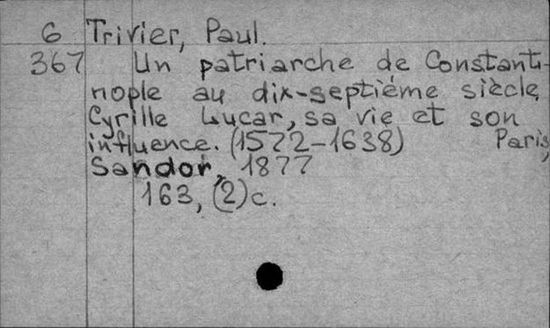 6 Trivier, Paul.
367 Un patriarche de Constanti-
nople au dix-septième siècle,
Cyrille Lucar, sa vie et son
influence. (1572-1638) Paris,
Sandor, 1877
163, (2) c.